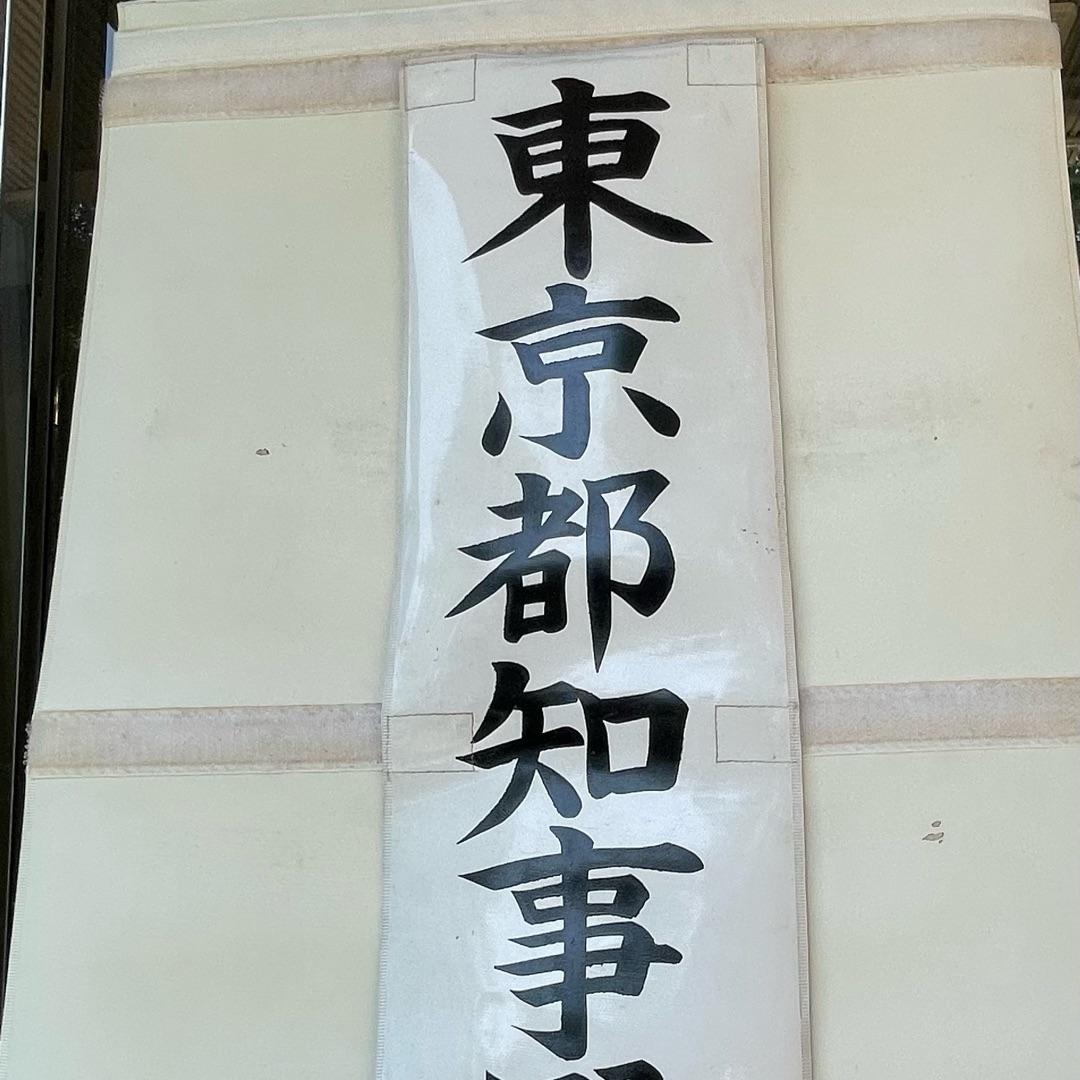 東京都知事